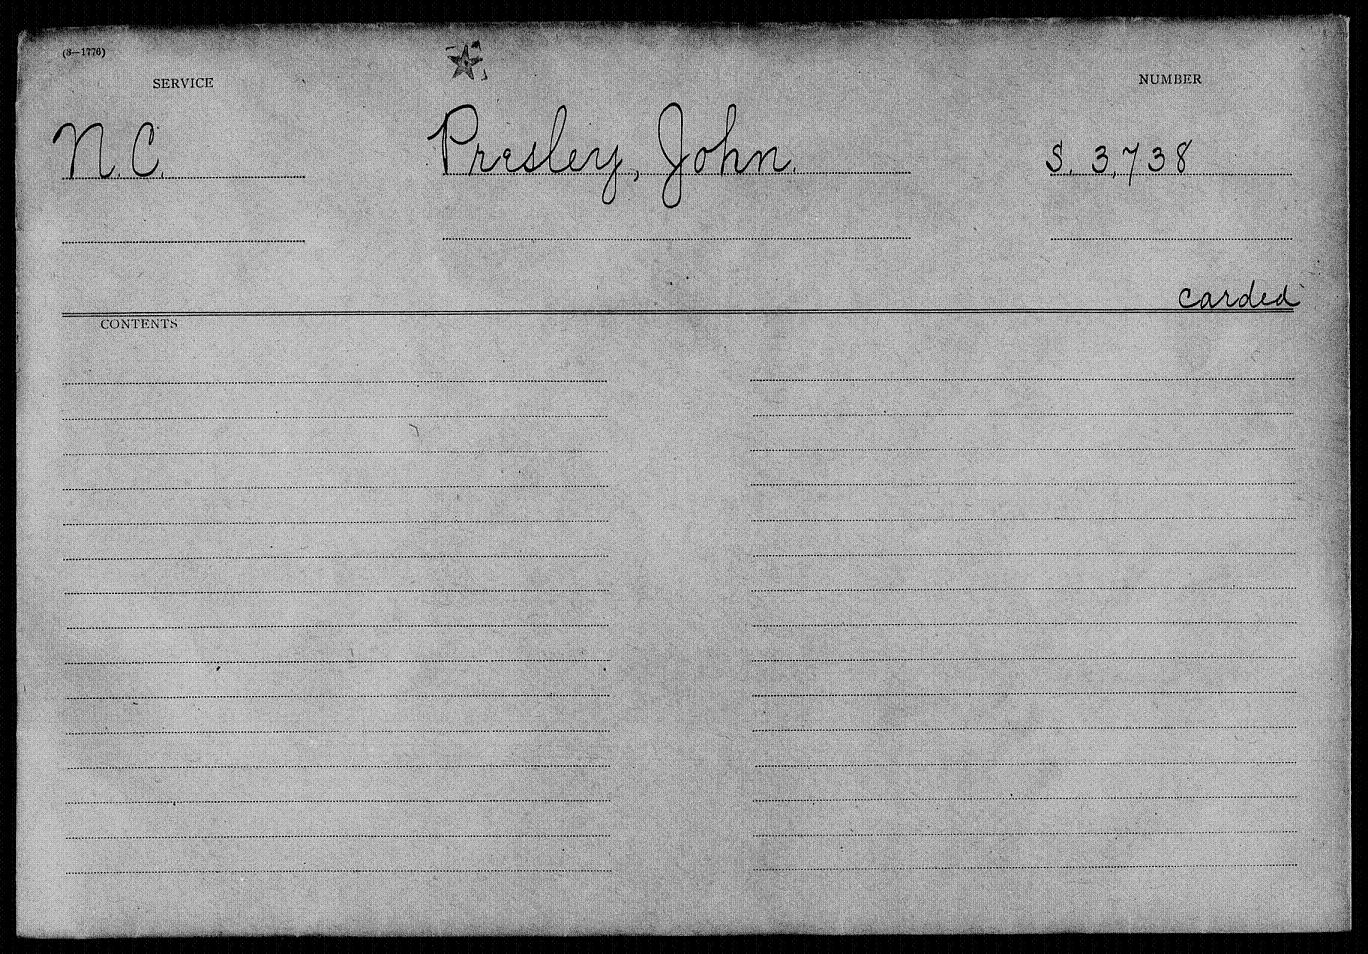 (3—1776)
SERVICE
NUMBER
N.C.
Presley, John.
S. 3,738
carded
CONTENTS